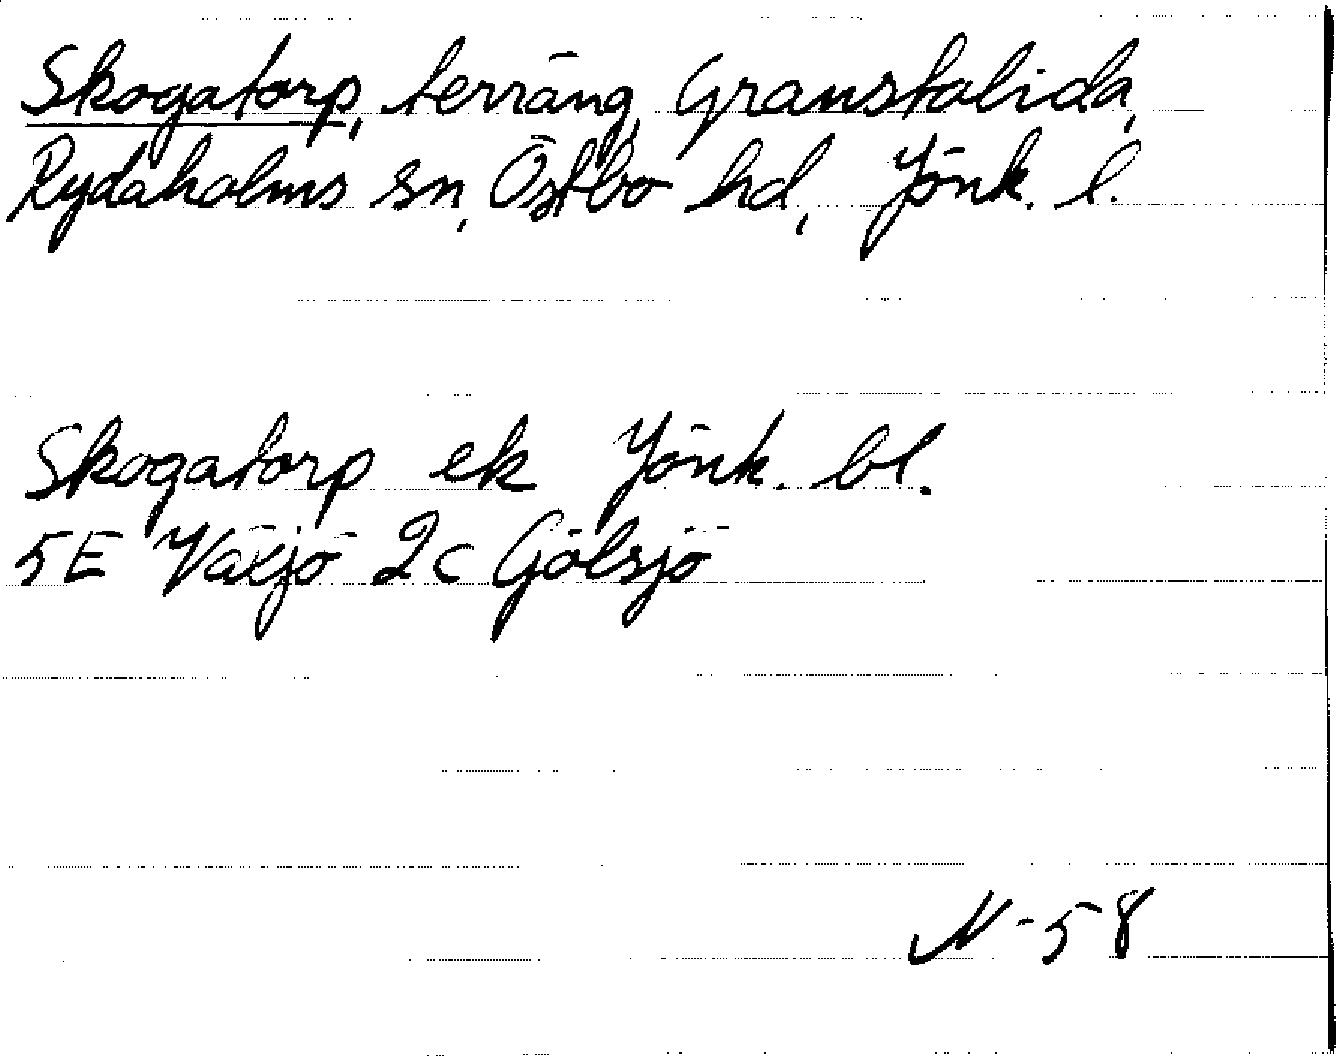 Skogatorp, terräng, Granstalida,
Rydaholms sn, Östbo hd, Jönk. l.
Skogatorp ek Jönk. bl.
5E Växjö 2c Gölsjö
N-58